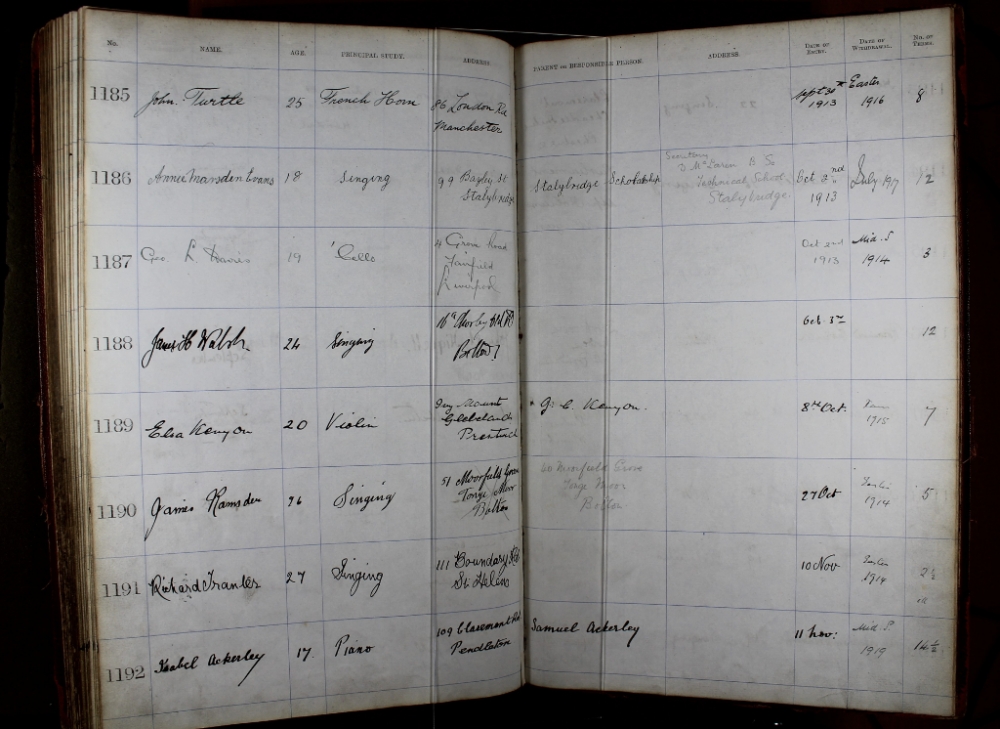 No. NAME. AGE. PRINCIPAL STUDY. ADDRESS. PARENT OR RESPONSIBLE PERSON. ADDRESS. DATE OF ENTRY. DATE OF WITHDRAWAL. No. OF TERMS.
1185 John. Turtle 25 French Horn 86 London Rd Sept 30th Easter 8
Manchester 1913 1916
1186 Annie Marsden Evans 18 Singing 99 Bayley St Stalybridge Scholarship Secretary Oct 2nd July 1917 12
Stalybridge McLaren B Sc 1913
Technical School
Stalybridge
1187 Geo. L. Davies 19 'Cello 4 Grove Road Oct 2nd Mid. S 3
Fairfield 1913 1914
Liverpool
1188 James H Walsh 24 Singing Chorley Old Rd Oct 3rd 12
Bolton
1189 Elsa Kenyon 20 Violin Mount G. C. Kenyon. 8th Oct. 1915 7
Glebelands
Prestwich
1190 James Ramsden 26 Singing 51 Moorfield Grove Moorfield Grove 27 Oct Easter 5
Tonge Moor Tonge Moor 1914
Bolton Bolton
1191 Richard Tranter 27 Singing 111 Boundary Rd 10 Nov Easter 2½
St Helens 1914
1192 Isabel Ackerley 17 Piano 109 Claremont Rd Samuel Ackerley 11 Nov: Mid. S 14½
Pendleton 1919